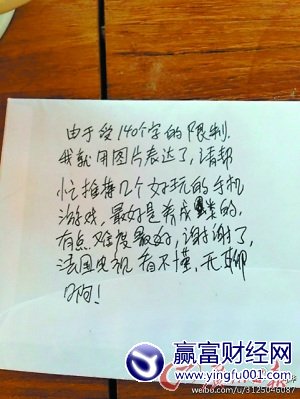 由于受140个字的限制.
我就用图片表达了,请帮
忙推荐几个好玩的手机
游戏,最好是养成类的,
有点难度最好,谢谢了,
法国电视看不懂,无聊
啊!
weibo.com/u/3125046087
赢富财经网
www.yingfu001.com